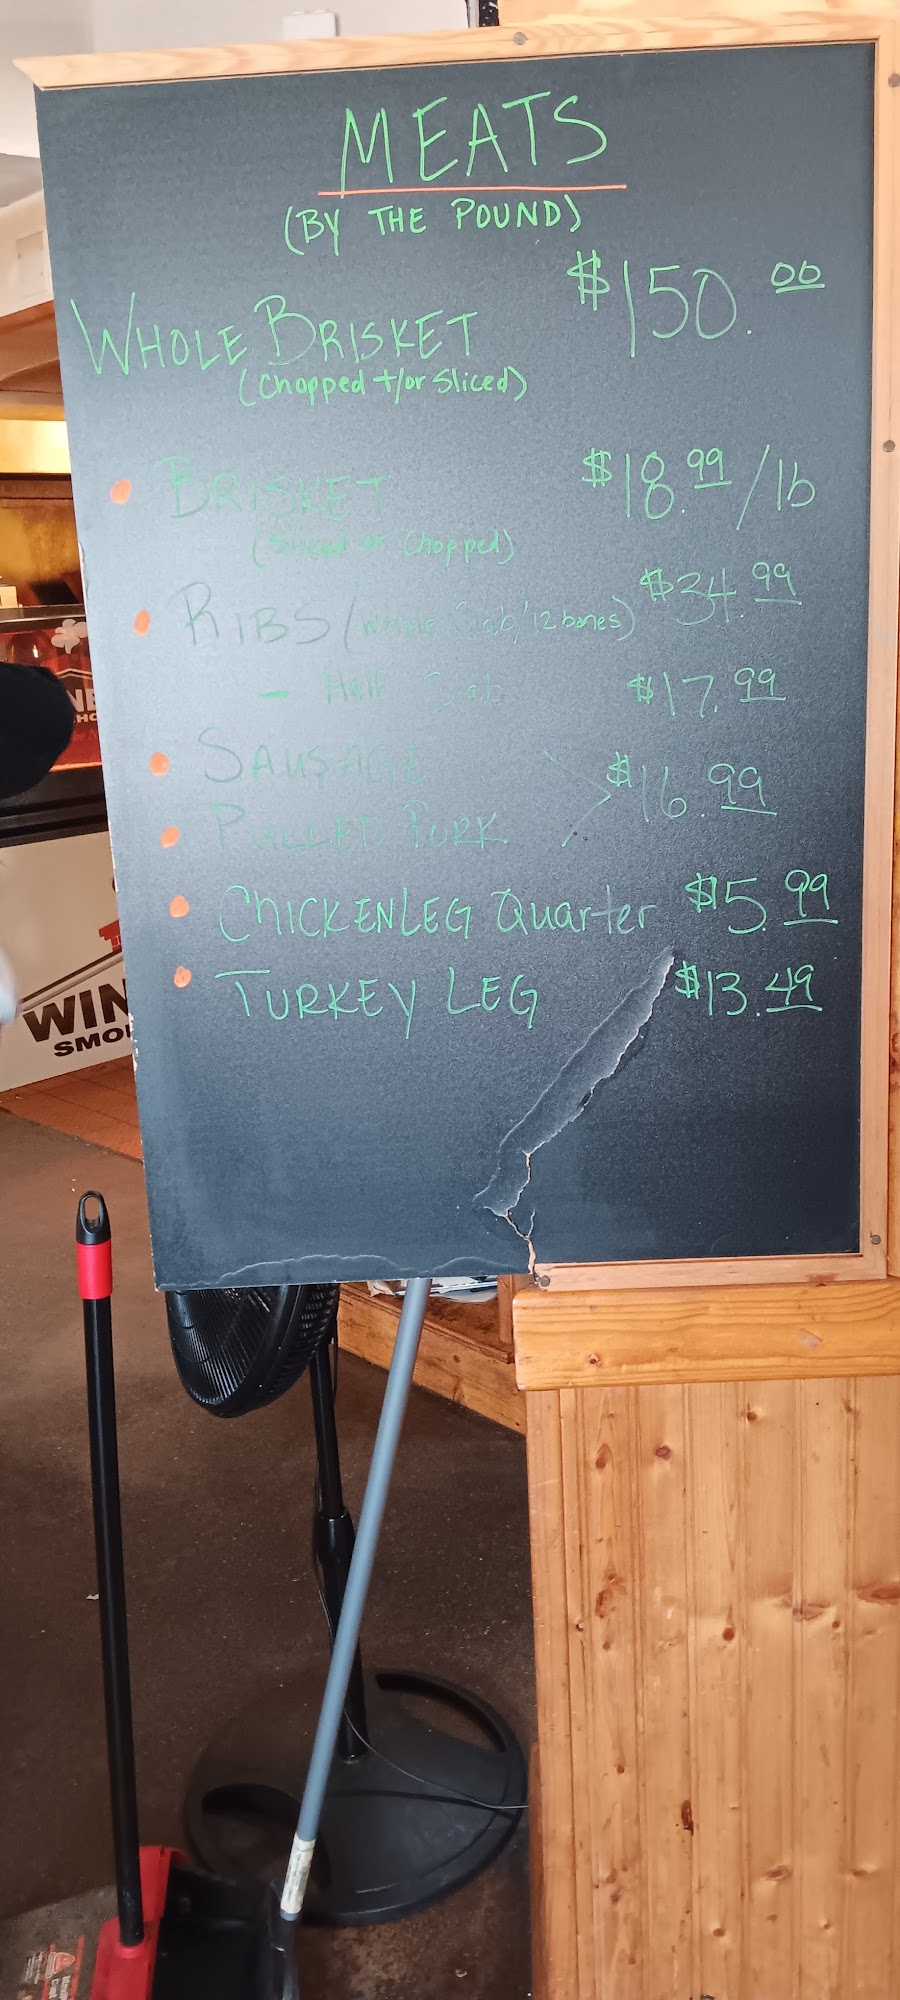 MEATS
(BY THE POUND)
WHOLE BRISKET $150.00
(Chopped +/or Sliced)
• BRISKET $18.99/lb
(Sliced or Chopped)
• RIBS (Whole Slab/12 bones) $34.99
- Half Slab $17.99
• SAUSAGE
• PULLED PORK > $16.99
• CHICKEN LEG Quarter $5.99
• TURKEY LEG $13.49
WIN
SMO